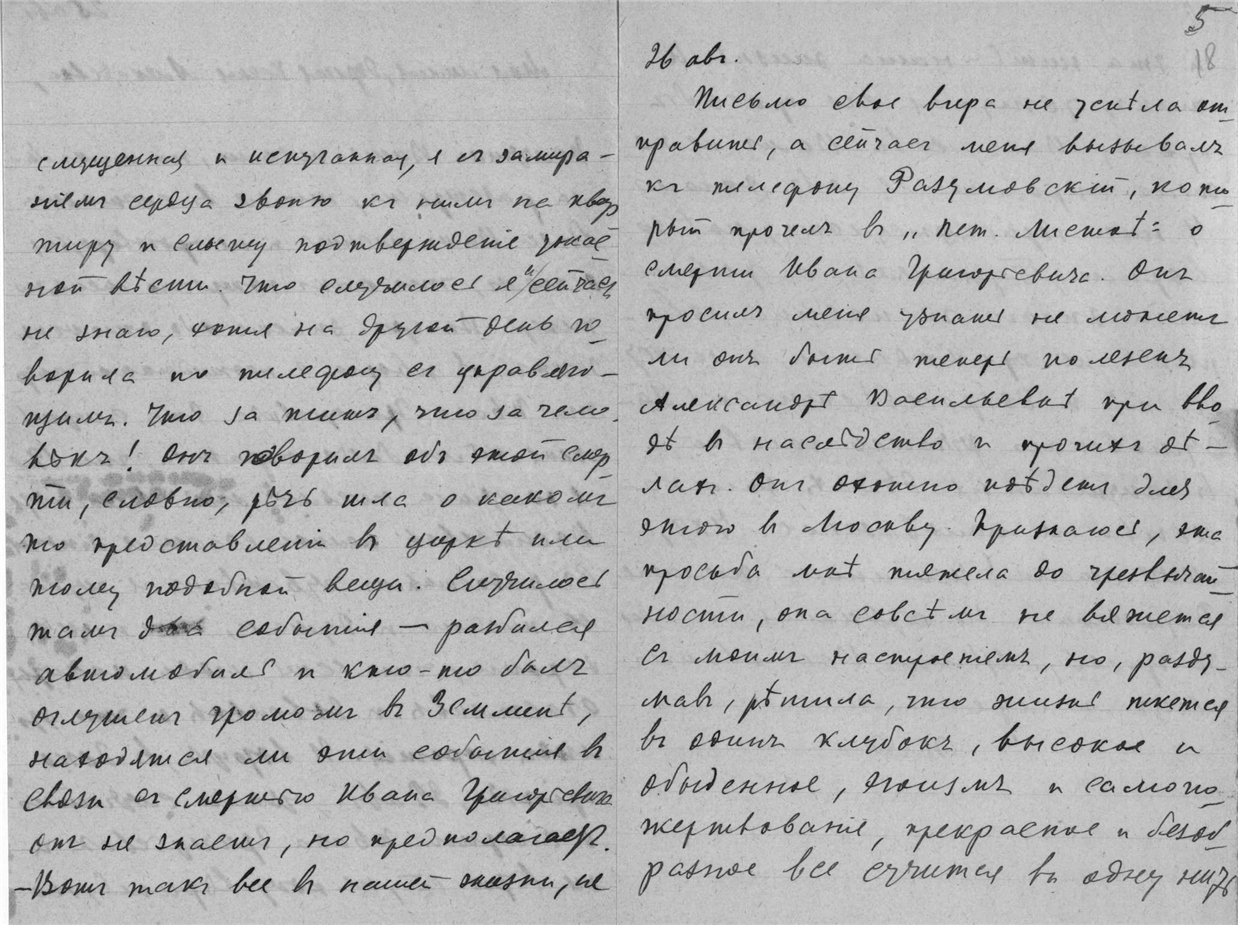 смущенная и испуганная, я съ замира-
ніемъ сердца звоню къ нимъ на квар
тиру и слышу подтвержденіе ужас
ной вѣсти. Что случилось я и сейчасъ
не знаю, хотя на другой день го
ворила по телефону съ управляю-
щимъ. Что за типъ, что за чело
вѣкъ! Онъ говорилъ объ этой смер
ти, словно, рѣчь шла о какомъ
то представленіи въ циркѣ или
тому подобной вещи. Случилось
тамъ два событія — разбился
автомобиль и кто-то былъ
оглушенъ громомъ въ
находятся ли эти событія въ
связи съ смертью Ивана Григорьевича
онъ не знаетъ, но предполагаетъ.
—Вотъ такъ все въ нашей жизни, не
5
18
26 авг.
Письмо свое вчера не успѣла от
править, а сейчасъ меня вызывалъ
къ телефону Разумовскій, кото
рый прочелъ въ „Пет. Листкѣ" о
смерти Ивана Григорьевича. Онъ
просилъ меня узнать не можетъ
ли онъ быть теперь полезенъ
Александрѣ Васильевнѣ при вво
дѣ въ наслѣдство и прочихъ дѣ-
лахъ. Онъ охотно поѣдетъ для
этого въ Москву. Признаюсь, эта
просьба мнѣ тяжела до чрезвычай
ности, она совсѣмъ не вяжется
съ моимъ настроеніемъ, но, разду-
мавъ, рѣшила, что жизнь ткется
въ одинъ клубокъ, высокое и
обыденное, эгоизмъ и самопо
жертвованіе, прекрасное и безоб
разное все сучится въ одну нить